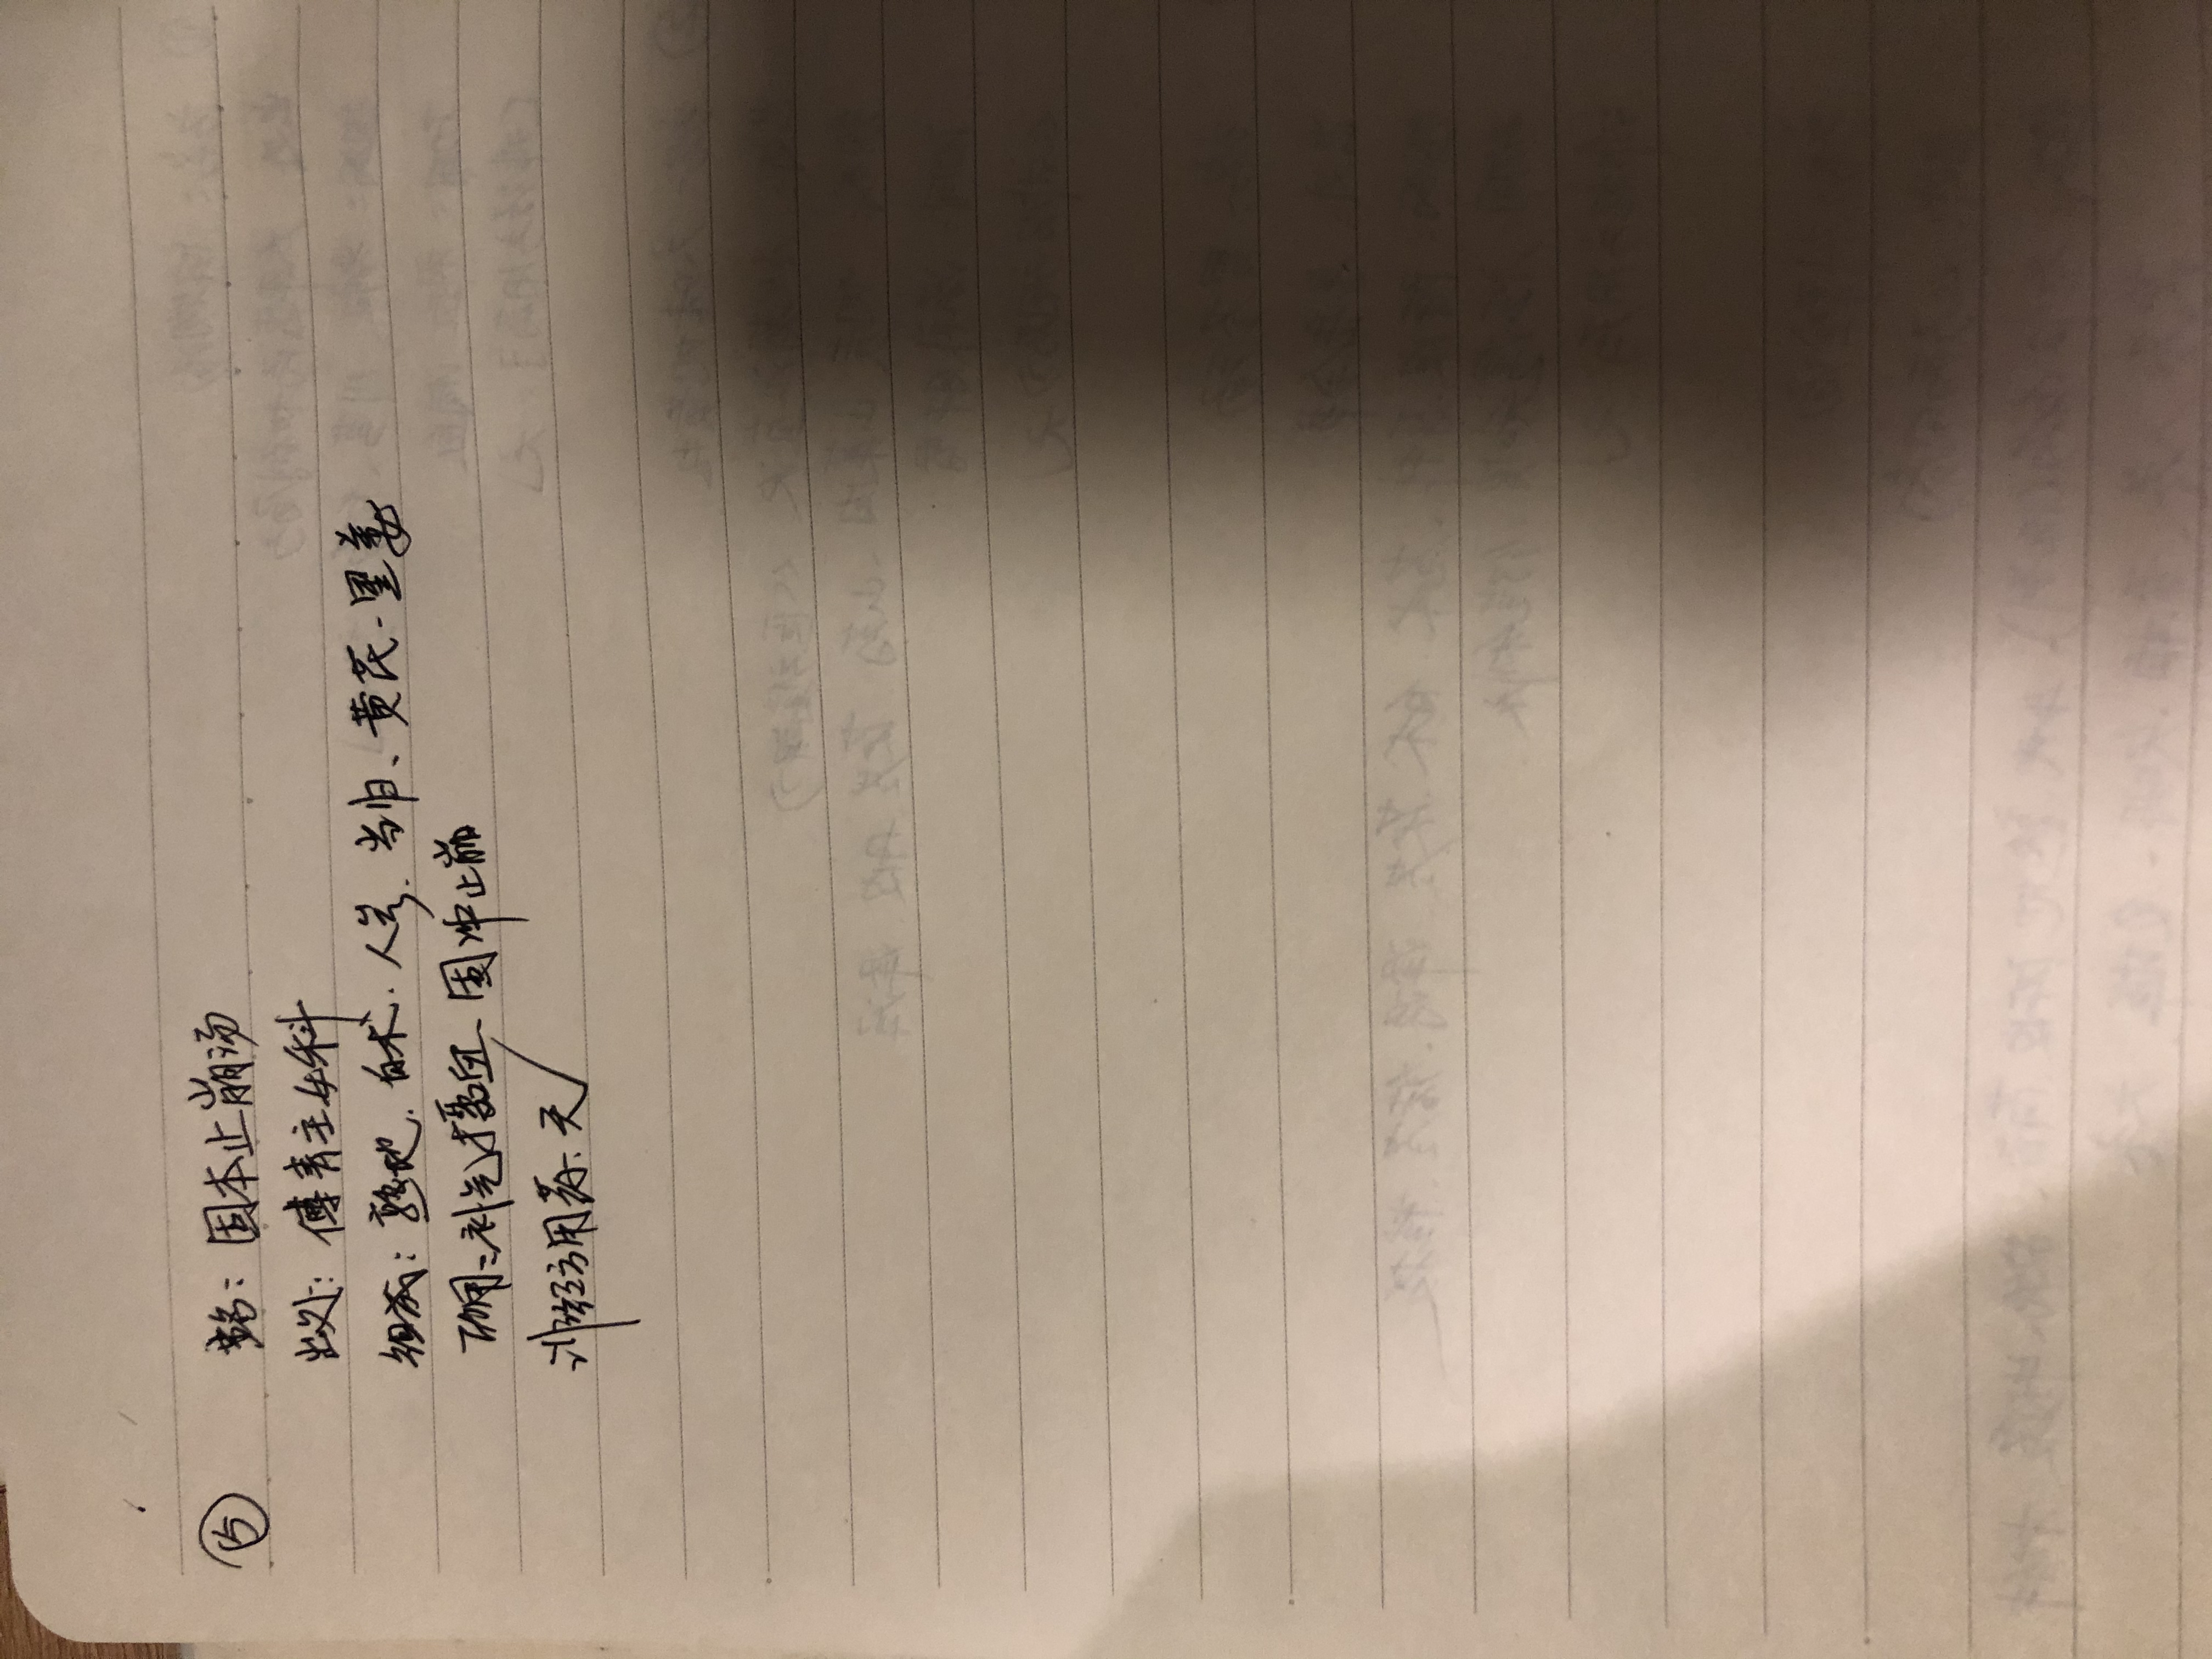 ⑮ 名：固本止崩汤
出处：傅青主女科
组成：熟地、白术、人参、当归、黄芪、黑姜
功用：补气摄血 固冲止崩
经方用药、天